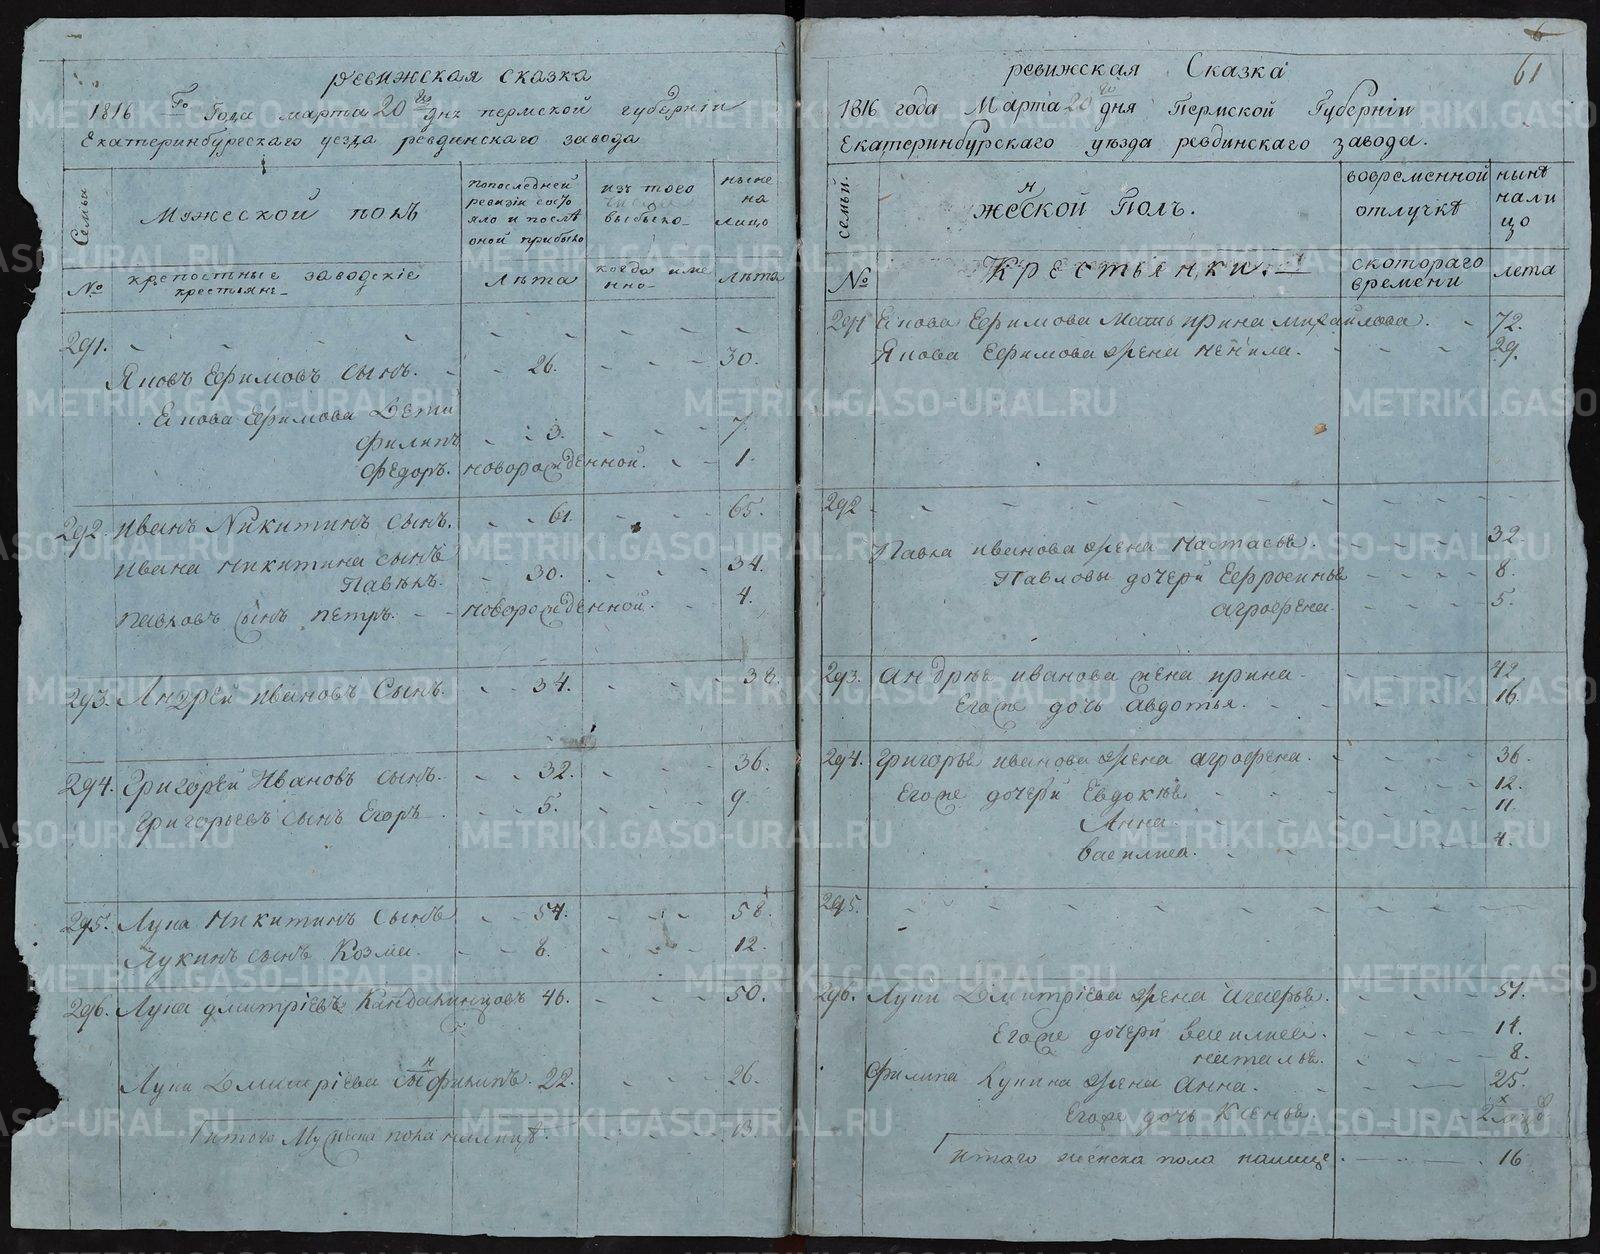 ревижская сказка
1816 го Года марта 20 го дня пермской губерніи
Екатеринбургскаго уезда ревдинскаго завода
Семьи
Мужеской полъ
попоследней
ревизіи состо
яло и послѣ
оной прибыло
изъ того
числа
выбыло
ныне
на
лицо
№
крепостные заводскіе
крестьяне
Лѣта
когда име
нно
лѣта
291.
Яковъ Ефимовъ сынъ. 26. 30.
Якова Ефимова Дети
Филипъ 3. 7.
Федоръ. новорожденной. 1.
292. Иванъ Никитинъ сынъ. 61. 65.
Ивана Никитина сынъ
Павелъ. 30. 34.
Павловъ сынъ Петръ. новорожденной. 4.
293. Андрей Ивановъ Сынъ. 34. 38.
294. Григорей Ивановъ сынъ. 32. 36.
Григорьевъ сынъ Егоръ 5. 9.
295. Лука Никитинъ Сынъ 54. 58.
Лукинъ сынъ Козма. 8. 12.
296. Лука Дмитріевъ 46. 50.
Луки Дмитріева сынъ Филипъ. 22. 26.
Итого Мужеска пола налицѣ. 13.
6
61
ревижская Сказка
1816 года Марта 20 го дня Пермской Губерніи
Екатеринбурскаго уѣзда ревдинскаго завода.
семьи.
женской Полъ.
вовременной
отлучкѣ
нынѣ
нали
цо
№
Крестьянки.
скотораго
времени
лета
291 Якова Ефимова Мать Ирина михайлова. 72.
Якова Ефимова жена Ненила. 29.
292
Павла иванова жена Настасья. 32.
Павловы дочери Ефросинья 8.
агрофена. 5.
293. андрѣя иванова жена ирина. 42.
Егоже дочь авдотья. 16.
294. григорья иванова жена агрофена. 36.
Егоже дочери Евдокѣя 12.
Анна 11.
василиса. 4.
295.
296. Луки Дмитріева жена 51.
Егоже дочери василиса. 14.
наталья. 8.
Филипа Лукина жена Анна. 25.
Егоже дочь Ксенья. 2
Итого женска пола налице. 16
METRIKI.GASO-URAL.RU